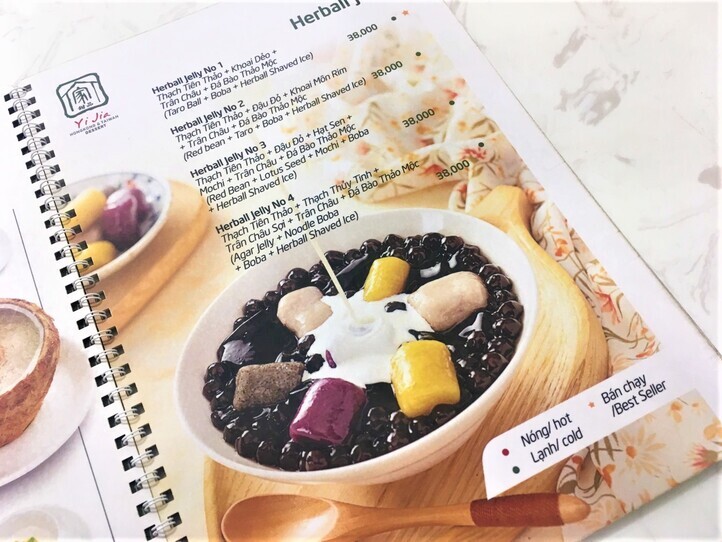 Herball J
家
Yi Jia
HONGKONG & TAIWAN
DESSERT
Herball Jelly No 1 38,000
Thạch Tiên Thảo + Khoai Dẻo +
Trân Châu + Đá Bào Thảo Mộc
(Taro Ball + Boba + Herball Shaved Ice)
Herball Jelly No 2 38,000
Thạch Tiên Thảo + Đậu Đỏ + Khoai Môn Rim
+ Trân Châu + Đá Bào Thảo Mộc
(Red bean + Taro + Boba + Herball Shaved Ice)
Herball Jelly No 3 38,000
Thạch Tiên Thảo + Đậu Đỏ + Hạt Sen +
Mochi + Trân Châu + Đá Bào Thảo Mộc
(Red Bean + Lotus Seed + Mochi + Boba
+ Herball Shaved Ice)
Herball Jelly No 4 38,000
Thạch Tiên Thảo + Thạch Thủy Tinh +
Trân Châu Sợi + Trân Châu + Đá Bào Thảo Mộc
(Agar Jelly + Noodle Boba
+ Boba + Herball Shaved Ice)
Nóng/ hot
Lạnh/ cold
Bán chạy
/Best Seller